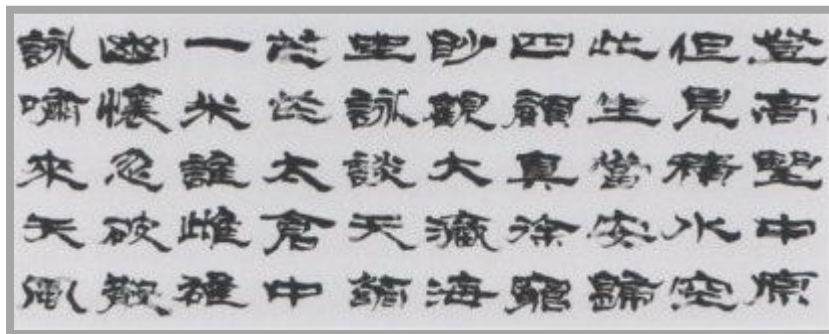 登高望中原
但見積水空
此生當安歸
四顧真途窮
眇觀大瀛海
坐詠談天翁
茫茫太倉中
一米誰雌雄
幽懷忽破散
詠嘯來天風